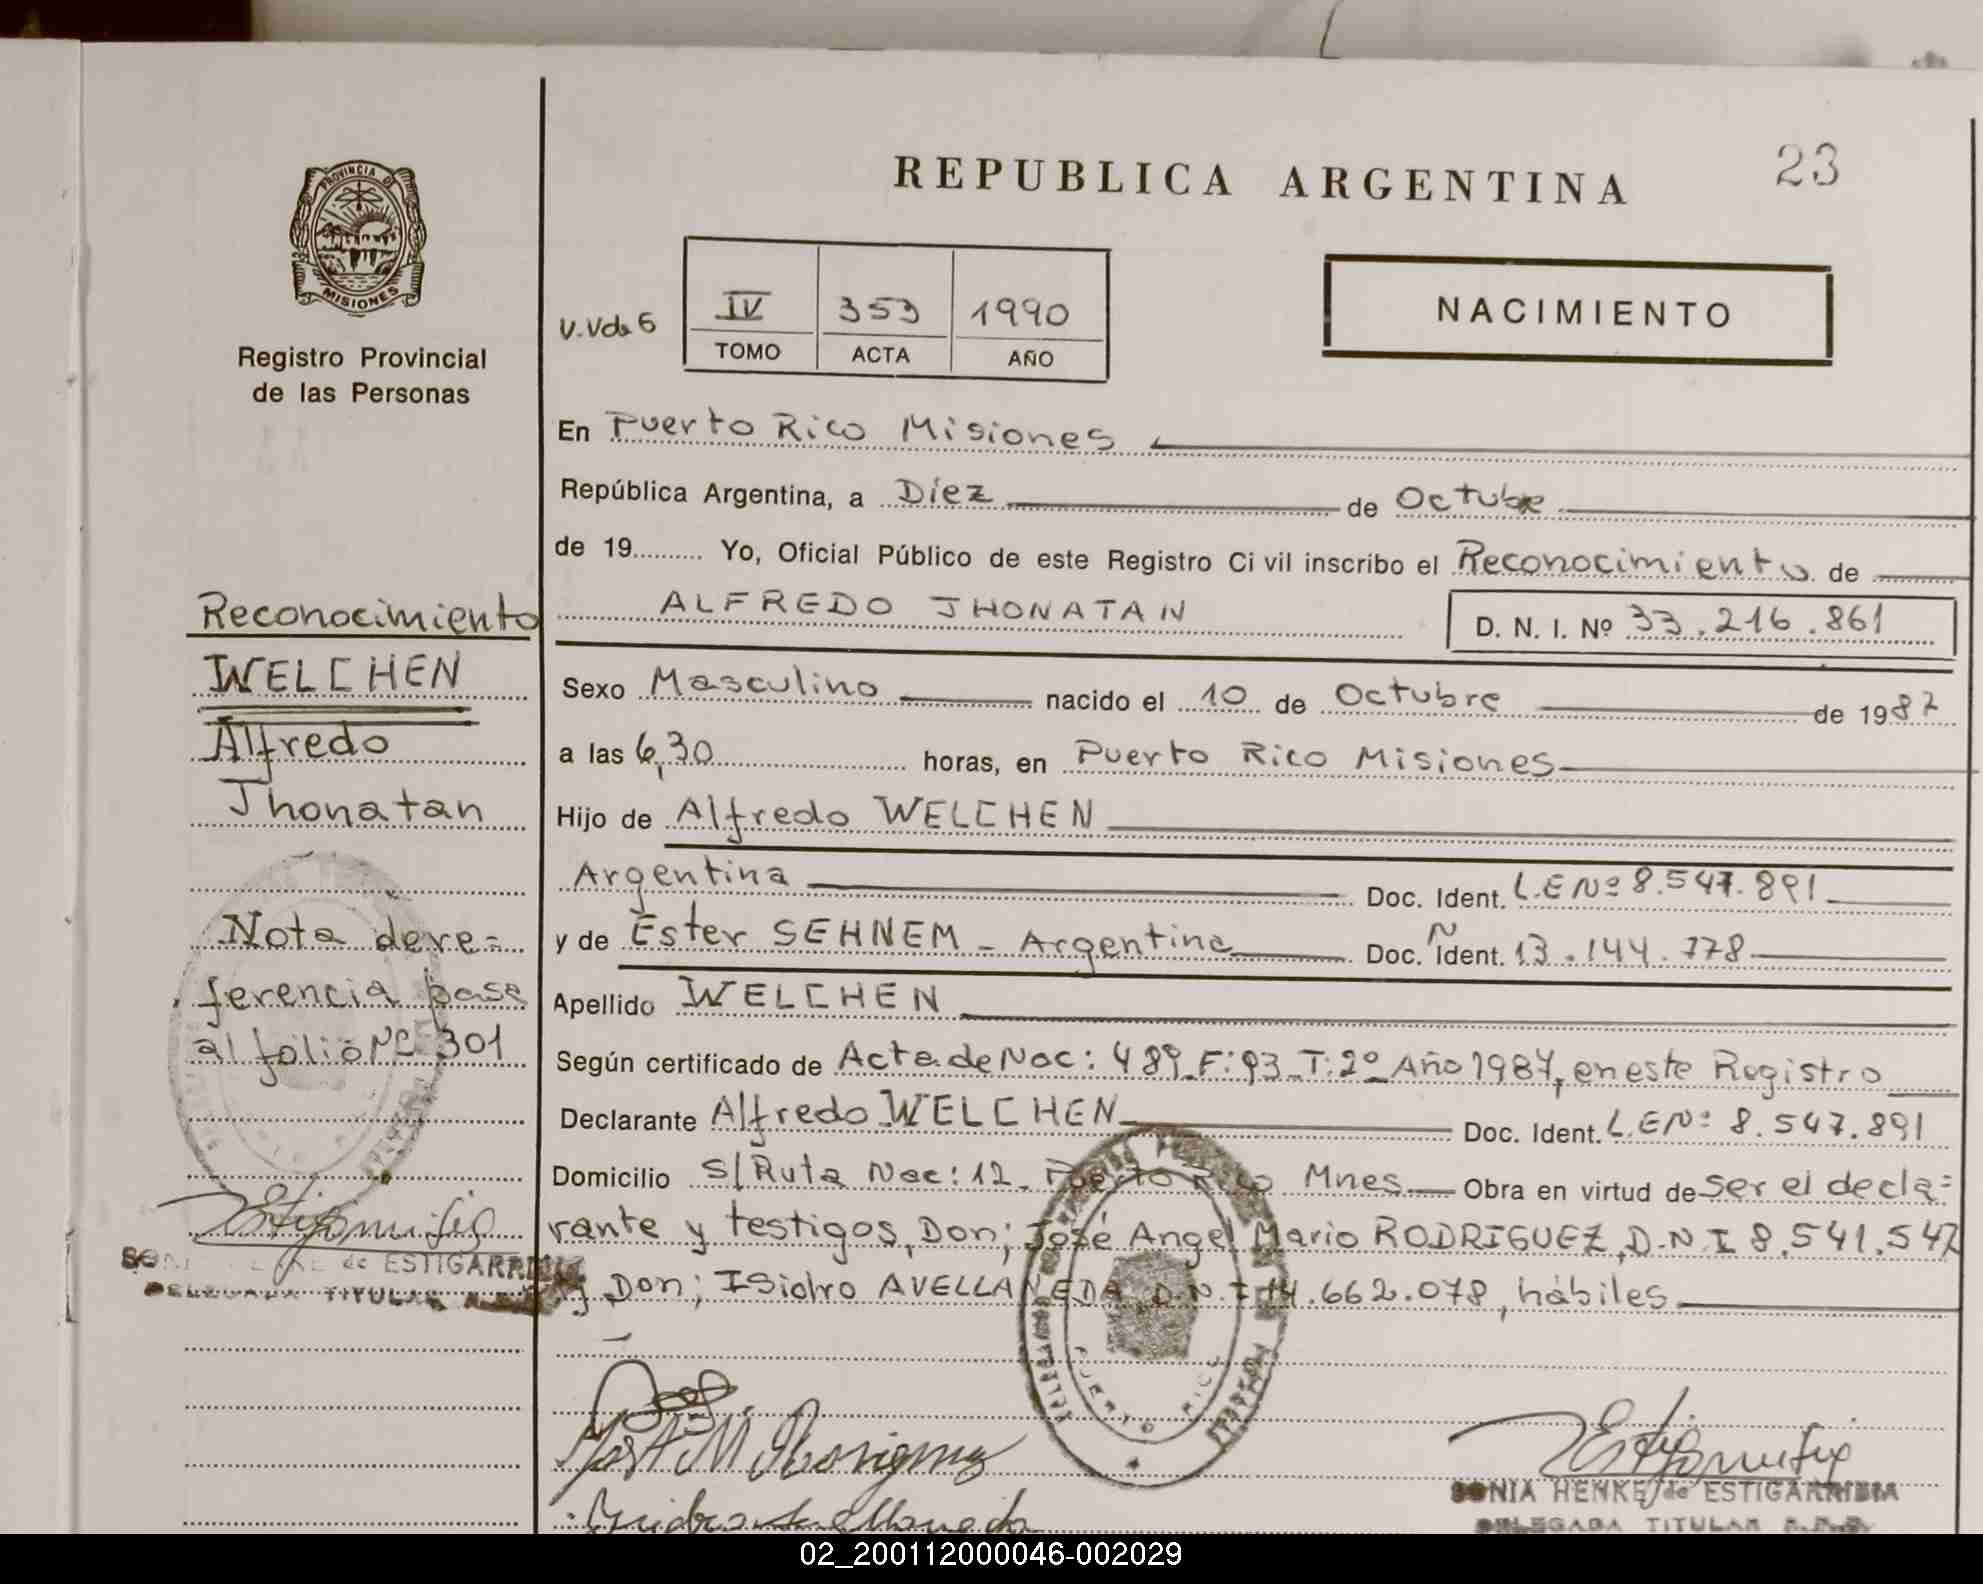 REPUBLICA ARGENTINA
23
PROVINCIA DE
MISIONES
Registro Provincial
de las Personas
IV 353 1990
TOMO ACTA AÑO
NACIMIENTO
En Puerto Rico Misiones
República Argentina, a Diez de Octubre
de 19......... Yo, Oficial Público de este Registro Ci vil inscribo el Reconocimiento de
ALFREDO JHONATAN D. N. I. Nº 33.216.861
Sexo Masculino nacido el 10 de Octubre de 1987
a las 6,30 horas, en Puerto Rico Misiones
Hijo de Alfredo WELCHEN
Argentina Doc. Ident. L.E Nº 8.547.891
y de Ester SEHNEM - Argentina Doc. Ident. N 13.144.778
Apellido WELCHEN
Según certificado de Acta de Nac: 489 F: 93 T: 2º Año 1987, en este Registro
Declarante Alfredo WELCHEN Doc. Ident. L.E Nº 8.547.891
Domicilio S/Ruta Nac: 12. Puerto Rico Mnes. Obra en virtud de ser el decla=
rante y testigos, Don; José Angel Mario RODRIGUEZ, D.N.I 8.541.547
y Don; Isidro AVELLANEDA D.N.I 14.662.078, hábiles
Reconocimiento
WELCHEN
Alfredo
Jhonatan
Nota de re=
ferencia pase
al folio Nº 301
de ESTIGARRIBIA
DELEGADA TITULAR
PUERTO RICO
SONIA HENKE de ESTIGARRIBIA
DELEGADA TITULAR
02_200112000046-002029